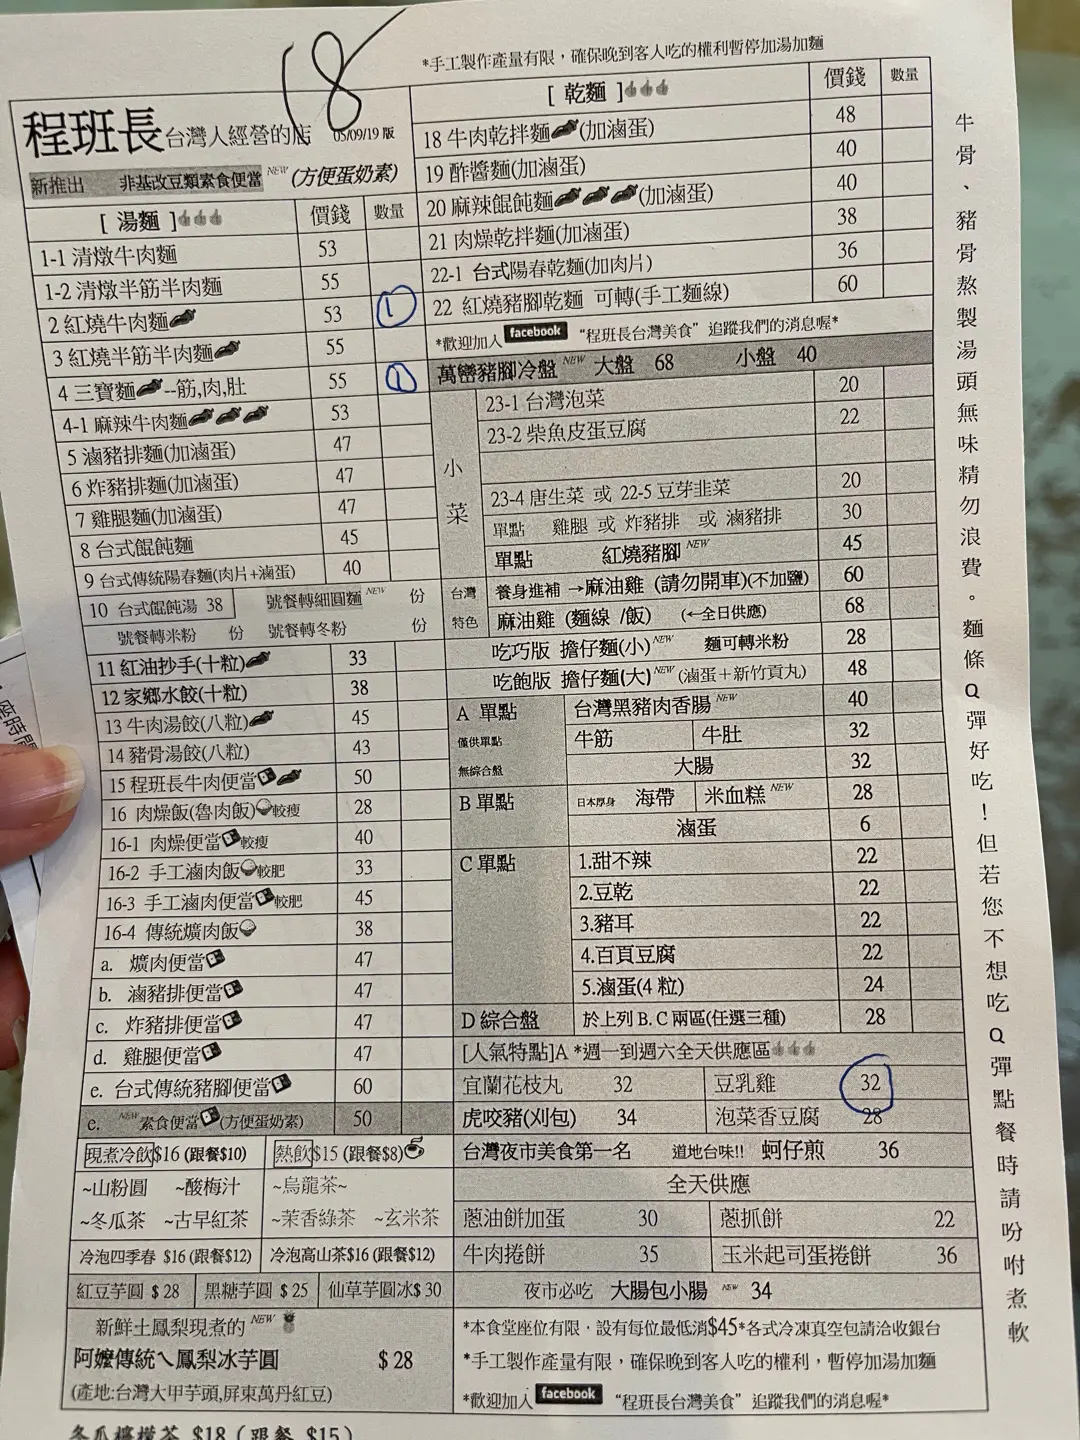 18
*手工製作產量有限，確保晚到客人吃的權利暫停加湯加麵
程班長台灣人經營的店 05/09/19 版
新推出 非基改豆類素食便當 NEW (方便蛋奶素)
[ 湯麵 ] 價錢 數量
1-1 清燉牛肉麵 53
1-2 清燉半筋半肉麵 55
2 紅燒牛肉麵 53 1
3 紅燒半筋半肉麵 55
4 三寶麵--筋,肉,肚 55 1
4-1 麻辣牛肉麵 53
5 滷豬排麵(加滷蛋) 47
6 炸豬排麵(加滷蛋) 47
7 雞腿麵(加滷蛋) 47
8 台式餛飩麵 45
9 台式傳統陽春麵(肉片+滷蛋) 40
10 台式餛飩湯 38 號餐轉細圓麵 NEW 份
號餐轉米粉 份 號餐轉冬粉 份
11 紅油抄手(十粒) 33
12 家鄉水餃(十粒) 38
13 牛肉湯餃(八粒) 45
14 豬骨湯餃(八粒) 43
15 程班長牛肉便當 50
16 肉燥飯(魯肉飯)較瘦 28
16-1 肉燥便當較瘦 40
16-2 手工滷肉飯較肥 33
16-3 手工滷肉便當較肥 45
16-4 傳統爌肉飯 38
a. 爌肉便當 47
b. 滷豬排便當 47
c. 炸豬排便當 47
d. 雞腿便當 47
e. 台式傳統豬腳便當 60
e. NEW 素食便當(方便蛋奶素) 50
現煮冷飲$16 (跟餐$10) 熱飲$15 (跟餐$8)
~山粉圓 ~酸梅汁 ~烏龍茶~
~冬瓜茶 ~古早紅茶 ~茉香綠茶 ~玄米茶
冷泡四季春 $16 (跟餐$12) 冷泡高山茶$16 (跟餐$12)
紅豆芋圓 $ 28 黑糖芋圓 $ 25 仙草芋圓冰$ 30
新鮮土鳳梨現煮的 NEW
阿嬤傳統ㄟ鳳梨冰芋圓 $ 28
(產地:台灣大甲芋頭,屏東萬丹紅豆)
冬瓜檸檬茶 $18 ( 跟餐 $15)
[ 乾麵 ] 價錢 數量
18 牛肉乾拌麵(加滷蛋) 48
19 酢醬麵(加滷蛋) 40
20 麻辣餛飩麵(加滷蛋) 40
21 肉燥乾拌麵(加滷蛋) 38
22-1 台式陽春乾麵(加肉片) 36
22 紅燒豬腳乾麵 可轉(手工麵線) 60
*歡迎加入 facebook “程班長台灣美食” 追蹤我們的消息喔*
萬巒豬腳冷盤 NEW 大盤 68 小盤 40
小菜
23-1 台灣泡菜 20
23-2 柴魚皮蛋豆腐 22
23-4 唐生菜 或 22-5 豆芽韭菜 20
單點 雞腿 或 炸豬排 或 滷豬排 30
單點 紅燒豬腳 NEW 45
台灣特色
養身進補 →麻油雞 (請勿開車)(不加鹽) 60
麻油雞 (麵線 /飯) (←全日供應) 68
吃巧版 擔仔麵(小) NEW 麵可轉米粉 28
吃飽版 擔仔麵(大) NEW (滷蛋＋新竹貢丸) 48
A 單點 台灣黑豬肉香腸 NEW 40
僅供單點 牛筋 牛肚 32
無綜合盤 大腸 32
B 單點 日本厚身 海帶 米血糕 NEW 28
滷蛋 6
C 單點 1.甜不辣 22
2.豆乾 22
3.豬耳 22
4.百頁豆腐 22
5.滷蛋(4 粒) 24
D 綜合盤 於上列 B. C 兩區(任選三種) 28
[人氣特點]A *週一到週六全天供應區
宜蘭花枝丸 32 豆乳雞 32
虎咬豬(刈包) 34 泡菜香豆腐 28
台灣夜市美食第一名 道地台味!! 蚵仔煎 36
全天供應
蔥油餅加蛋 30 蔥抓餅 22
牛肉捲餅 35 玉米起司蛋捲餅 36
夜市必吃 大腸包小腸 NEW 34
*本食堂座位有限，設有每位最低消$45*各式冷凍真空包請洽收銀台
*手工製作產量有限，確保晚到客人吃的權利，暫停加湯加麵
*歡迎加入 facebook “程班長台灣美食” 追蹤我們的消息喔*
牛骨、豬骨熬製湯頭無味精勿浪費。麵條Q彈好吃！但若您不想吃Q彈點餐時請吩咐煮軟